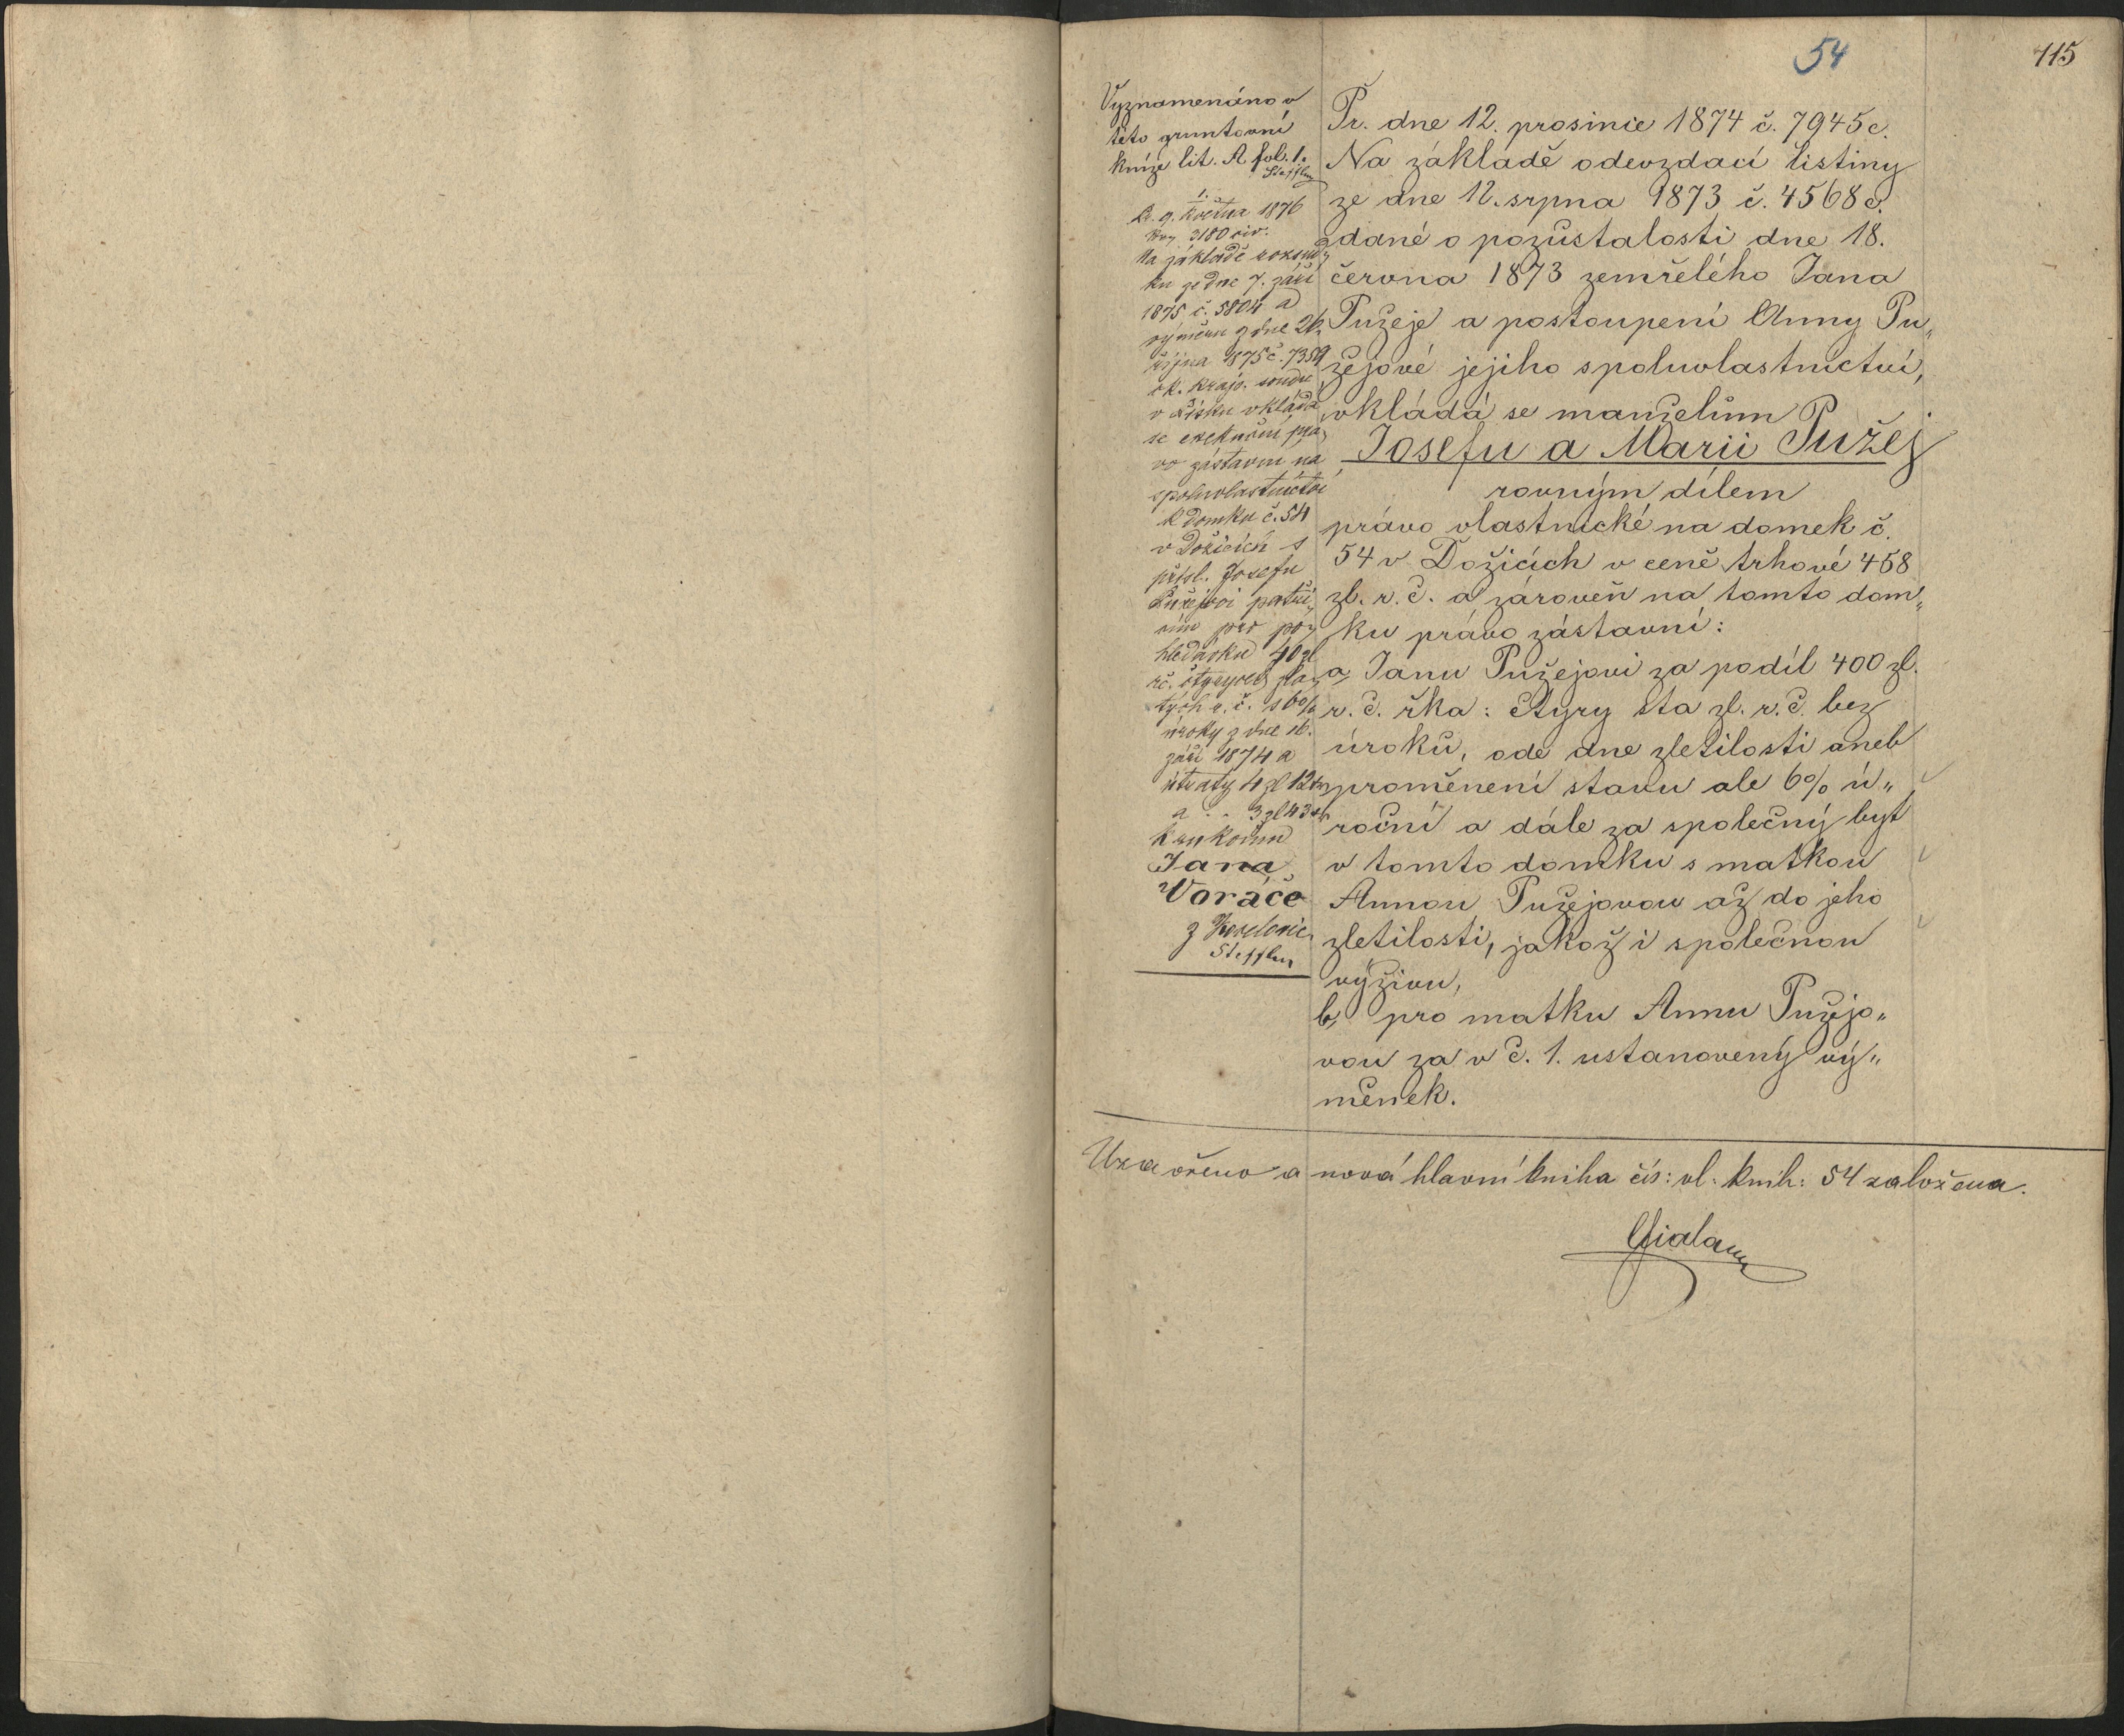 54
115
Vyznamenáno v
této gruntovní
knize lit. A. fol. 1.
Steffler
1.
Pr. 9. května 1876
3180 civ.
Na základě rozsud„
ku ze dne 7. září
1875 č. 5804 a
výměru z dne 26.
října 1875 č. 7359
ck. kraj. soudu
v Písku vkládá
se exekuční prá„
vo zástavní na
spoluvlastnictví
k domku č. 54
v Dožicích s
přísl. Josefu
Pužejovi patří„
cím pro po„
hledávku 40 zl
rč. čtyryceti zla„
tých r. č. s 6%
úroky z dne
září 1874 a
útraty 4 zl 12 kr
a „ 3 zl 43 kr
ku rukoum
Jana
Voráče
z
Steffler
Pr. dne 12. prosince 1874 č. 7945 c.
Na základě odevzdací listiny
ze dne 12. srpna 1873 č. 4568 c.
dané o pozůstalosti dne 18.
června 1873 zemřelého Jana
Pužeje a postoupení Anny Pu„
žejové jejího spoluvlastnictví,
vkládá se manželům
Josefu a Marii Pužej
rovným dílem
právo vlastnické na domek č.
54 v Dožicích v ceně trhové 458
zl. r. č. a zároveň na tomto dom„
ku právo zástavní:
a, Janu Pužejovi za podíl 400 zl.
r. č. řka: čtyry sta zl. r. č. bez
úroků, ode dne zletilosti aneb
proměnení stavu ale 6% ú„
roční a dále za společný byt
v tomto domku s matkou
Annou Pužejovou až do jeho
zletilosti, jakož i společnou
výživu,
b, pro matku Annu Pužejo„
vou za v č. 1. ustanovený vý„
měnek.
Uzavřeno a nová hlavní kniha čís: vl: knih: 54 založena.
Fiala